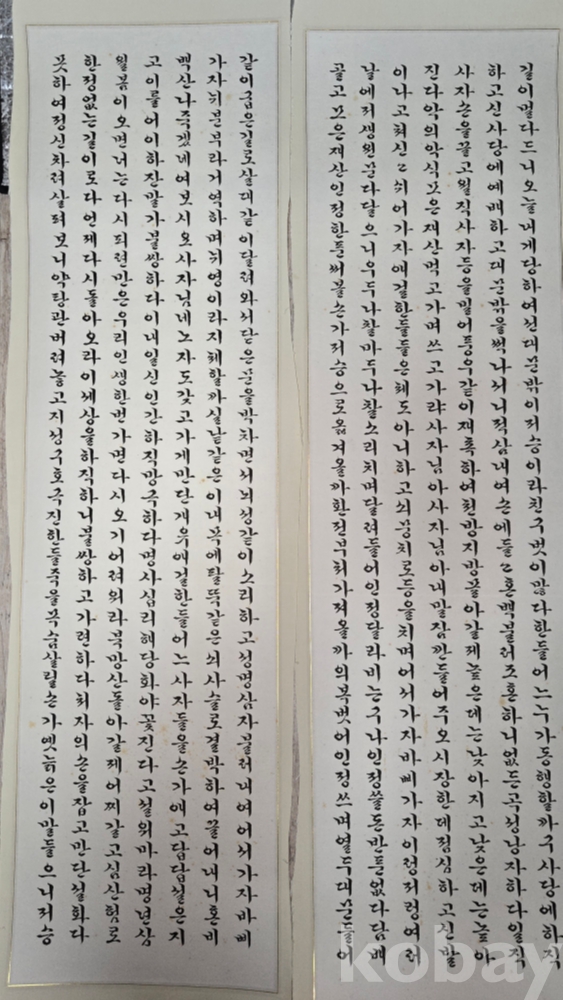 같이굽은길로살대같이달려와서닫은문을박차면서뇌성같이소리하고성명삼자불러내여어서가자바삐
가자뉘분부라거역하며뉘영이라지체할까실낱같은이내목에팔뚝같은쇠사슬로결박하여끌어내니혼비
백산나죽겠네여보시오사자님네노자도갖고가게만단개유애걸한들어느사자들을손가애고답답설은지
고이를어이하잔말가불쌍하다이내일신인간하직망극하다명사심리해당화야꽃진다고설워마라명년삼
월봄이오면너는다시피련만은우리인생한번가면다시오기어려워라북망산돌아갈제어찌갈고심산험로
한정없는길이로다언제다시돌아오랴이세상을하직하니불쌍하고가련하다처자의손을잡고만단설화다
못하여정신차려살펴보니약탕관버려놓고지성구호극진한들죽을목숨살릴손가옛늙은이말들으니저승
길이멀다드니오늘내게당하여선대문밖이저승이라친구벗이많다한들어느누가동행할까구사당에하직
하고신사당에예배하고대문밖을썩나서니적삼내여손에들고혼백불러초혼하니없든곡성낭자하다일직
사자손을끌고월직사자등을밀어풍우같이재촉하여천방지방몰아갈제높은데는낮아지고낮은데는높아
진다악의악식모은재산먹고가며쓰고가랴사자님아사자님아내말잠깐들어주오시장한데점심하고신발
이나고쳐신고쉬어가자애걸한들들은체도아니하고쇠뭉치로등을치며어서가자바삐가자이렁저렁여러
날에저생원문다달으니우두나찰마두나찰소리치며달려들어인정달라비는구나인정쓸돈반푼없다담배
골고모은재산인정한푼써볼손가저승으로옮겨올까환전부쳐가져올까의복벗어인정쓰며열두대문들어
kobay